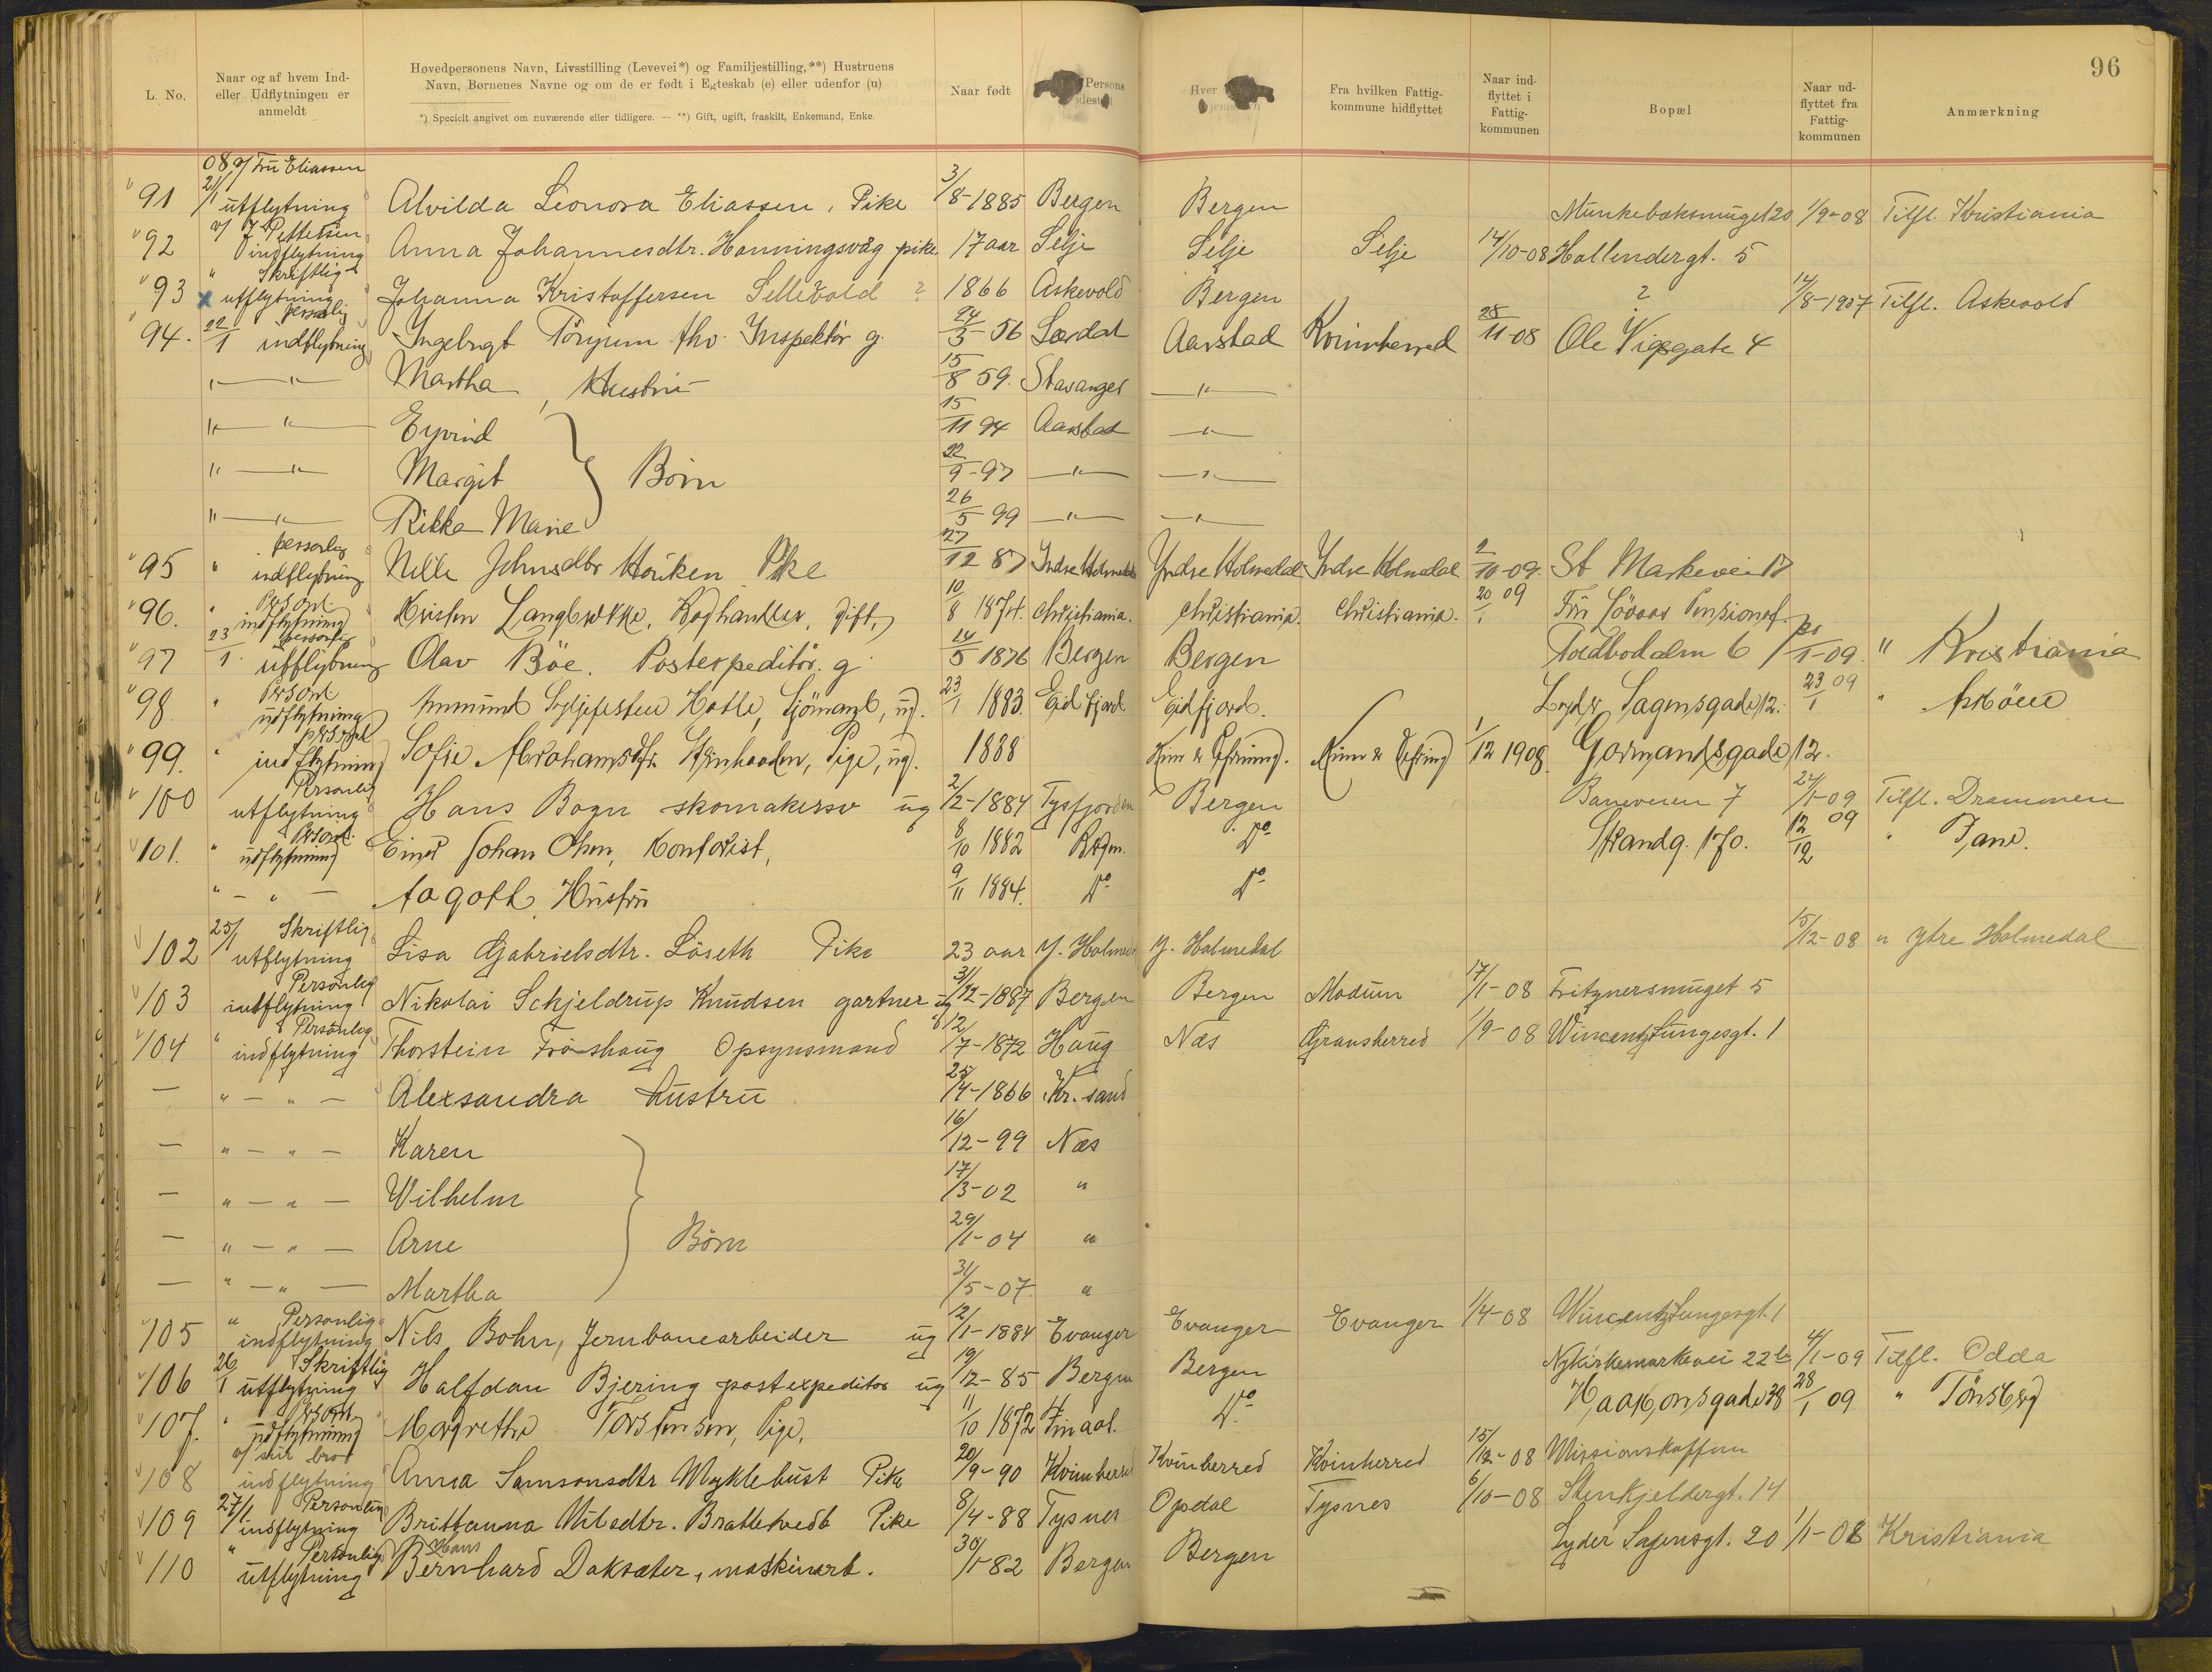 96
L. No.
Naar og af hvem Ind- eller Udflytningen er anmeldt
Høvedpersonens Navn, Livsstilling (Levevei*) og Familjestilling,**) Hustruens Navn, Børnenes Navne og om de er født i Egteskab (e) eller udenfor (u)
*) Specielt angivet om nuværende eller tidligere. — **) Gift, ugift, fraskilt, Enkemand, Enke.
Naar født
Persons
Hver
Fra hvilken Fattig- kommune hidflyttet
Naar ind- flyttet i Fattig- kommunen
Bopæl
Naar ud- flyttet fra Fattig- kommunen
Anmærkning
08 v/ Fru Eliassen
91 21/1 utflytning Alvilda Leonora Eliassen, Pike 3/8-1885 Bergen Bergen Munkebæksmuget 20 1/9-08 Tilfl. Kristiania
92 v/ J Pettersen indflytning Anna Johannesdtr. Honningsvåg pike 17 aar Selje Selje Selje 14/10-08 Hollendergt. 5
93 x " Skriftlig utflytning Johanna Kristoffersen Sellevold ? 1866 Askevold Bergen ? 14/8-1907 Tilfl. Askevold
94. 22/1 personlig indflytning Ingebrigt Tönjum fhv. Inspektör g. 24/3-56 Lærdal Aarstad Kvinnherred 28/11-08 Ole Vigsgate 4
" " Martha, Hustru 15/8 59. Stavanger "
" " Eyvind 15/11 94 Aarstad "
" " Margit Börn 22/9-97 " "
" " Rikka Marie 26/5 99 " "
95 " personlig indflytning Nille Johnsdtr Höiken Pike 27/12 87 Indre Holmedal Yndre Holmedal Indre Holmedal 2/10-09. St Markevei 17
96. " Persont indflytning Kristen Langbrekke, Boghandler, gift, 10/8 1874. Christiania. Christiania. Christiania. 20/1 09 Fru Pensionat
97 23/1. personlig utflytning Olav Böe. Postexpeditör. g. 14/5 1876 Bergen Bergen Toldbodalm 6 /1-09. " Kristiania
98. " Persont udflytning Sjömand, ug. 23/1 1883. Eidfjord Eidfjord. Lyder Sagensgade 12. 23/1 09 "
99. " persont indflytning Sofie Abrahamsdtr. Pige, ug. 1888 Kinn & Kinn & 1/12 1908. Gormandsgade 12.
100 Personlig utflytning Hans Bogn skomakersv ug 2/2-1884 Tysfjorden Bergen Baneveien 7 24/1-09 Tilfl. Drammen
101. " Persont. udflytning Einar Johan Ohm, Kontorist, 8/10 1882 Bergen. Do Strandg. 170. 12/12 09 " Fane.
" - " - Aagoth, Hustru 9/11 1884. Do Do
102 25/1 Skriftlig utflytning Lisa Gabrielsdtr. Löseth Pike 23 aar Y. Holmed Y. Holmedal 15/12-08 " Ytre Holmedal
103 Personlig indflytning Nikolai Schjeldrup Knudsen gartner ug 31/12-1887 Bergen Bergen Modum 17/1-08 Fritznersmuget 5
104 " Personlig indflytning Thorstein Fröshaug Opsynsmand 12/7-1872 Haug Næs Gransherred 1/9-08 Wincentz Lungesgt. 1
— " - " - Alexsandra hustru 25/4-1866 Kr. sand
— " - " - Karen 16/12-99 Næs
— " - " - Wilhelm 17/3-02 "
— " - " - Arne Börn 29/1-04 "
— " - " - Martha 31/5-07. "
105 " Personlig indflytning Nils Bohn, Jernbanearbeider ug 12/1-1884 Evanger Evanger Evanger 1/4-08 Wincentz Lungesgt. 1
106 26/1 Skriftlig utflytning Halfdan Bjering postexpeditor ug 19/12-85 Bergen Bergen Nykirkemarkevei 22 4/1-09 Tilfl. Odda
107. " Persont udflytning Margrethe Torstensen, Pige, 11/10 1872 Do Haakonsgade 38 28/1 09 " Tönsberg
108 v/ sin bror indflytning Anna Samsonsdtr Myklebust Pike 20/9-90 Kvinherred Kvinherred Kvinherred 15/12-08 Missionskaffeen
109 27/1 Personlig indflytning Brittanna Nilsdtr. Brattetvedt Pike 8/4-88 Tysnes Opdal Tysnes 6/10-08 Stenkjeldergt. 14
110 " Personlig utflytning Hans Bernhard Daksæter, maskinarb. 30/1-82 Bergen Bergen Lyder Sagensgt. 20 1/1-08 Kristiania